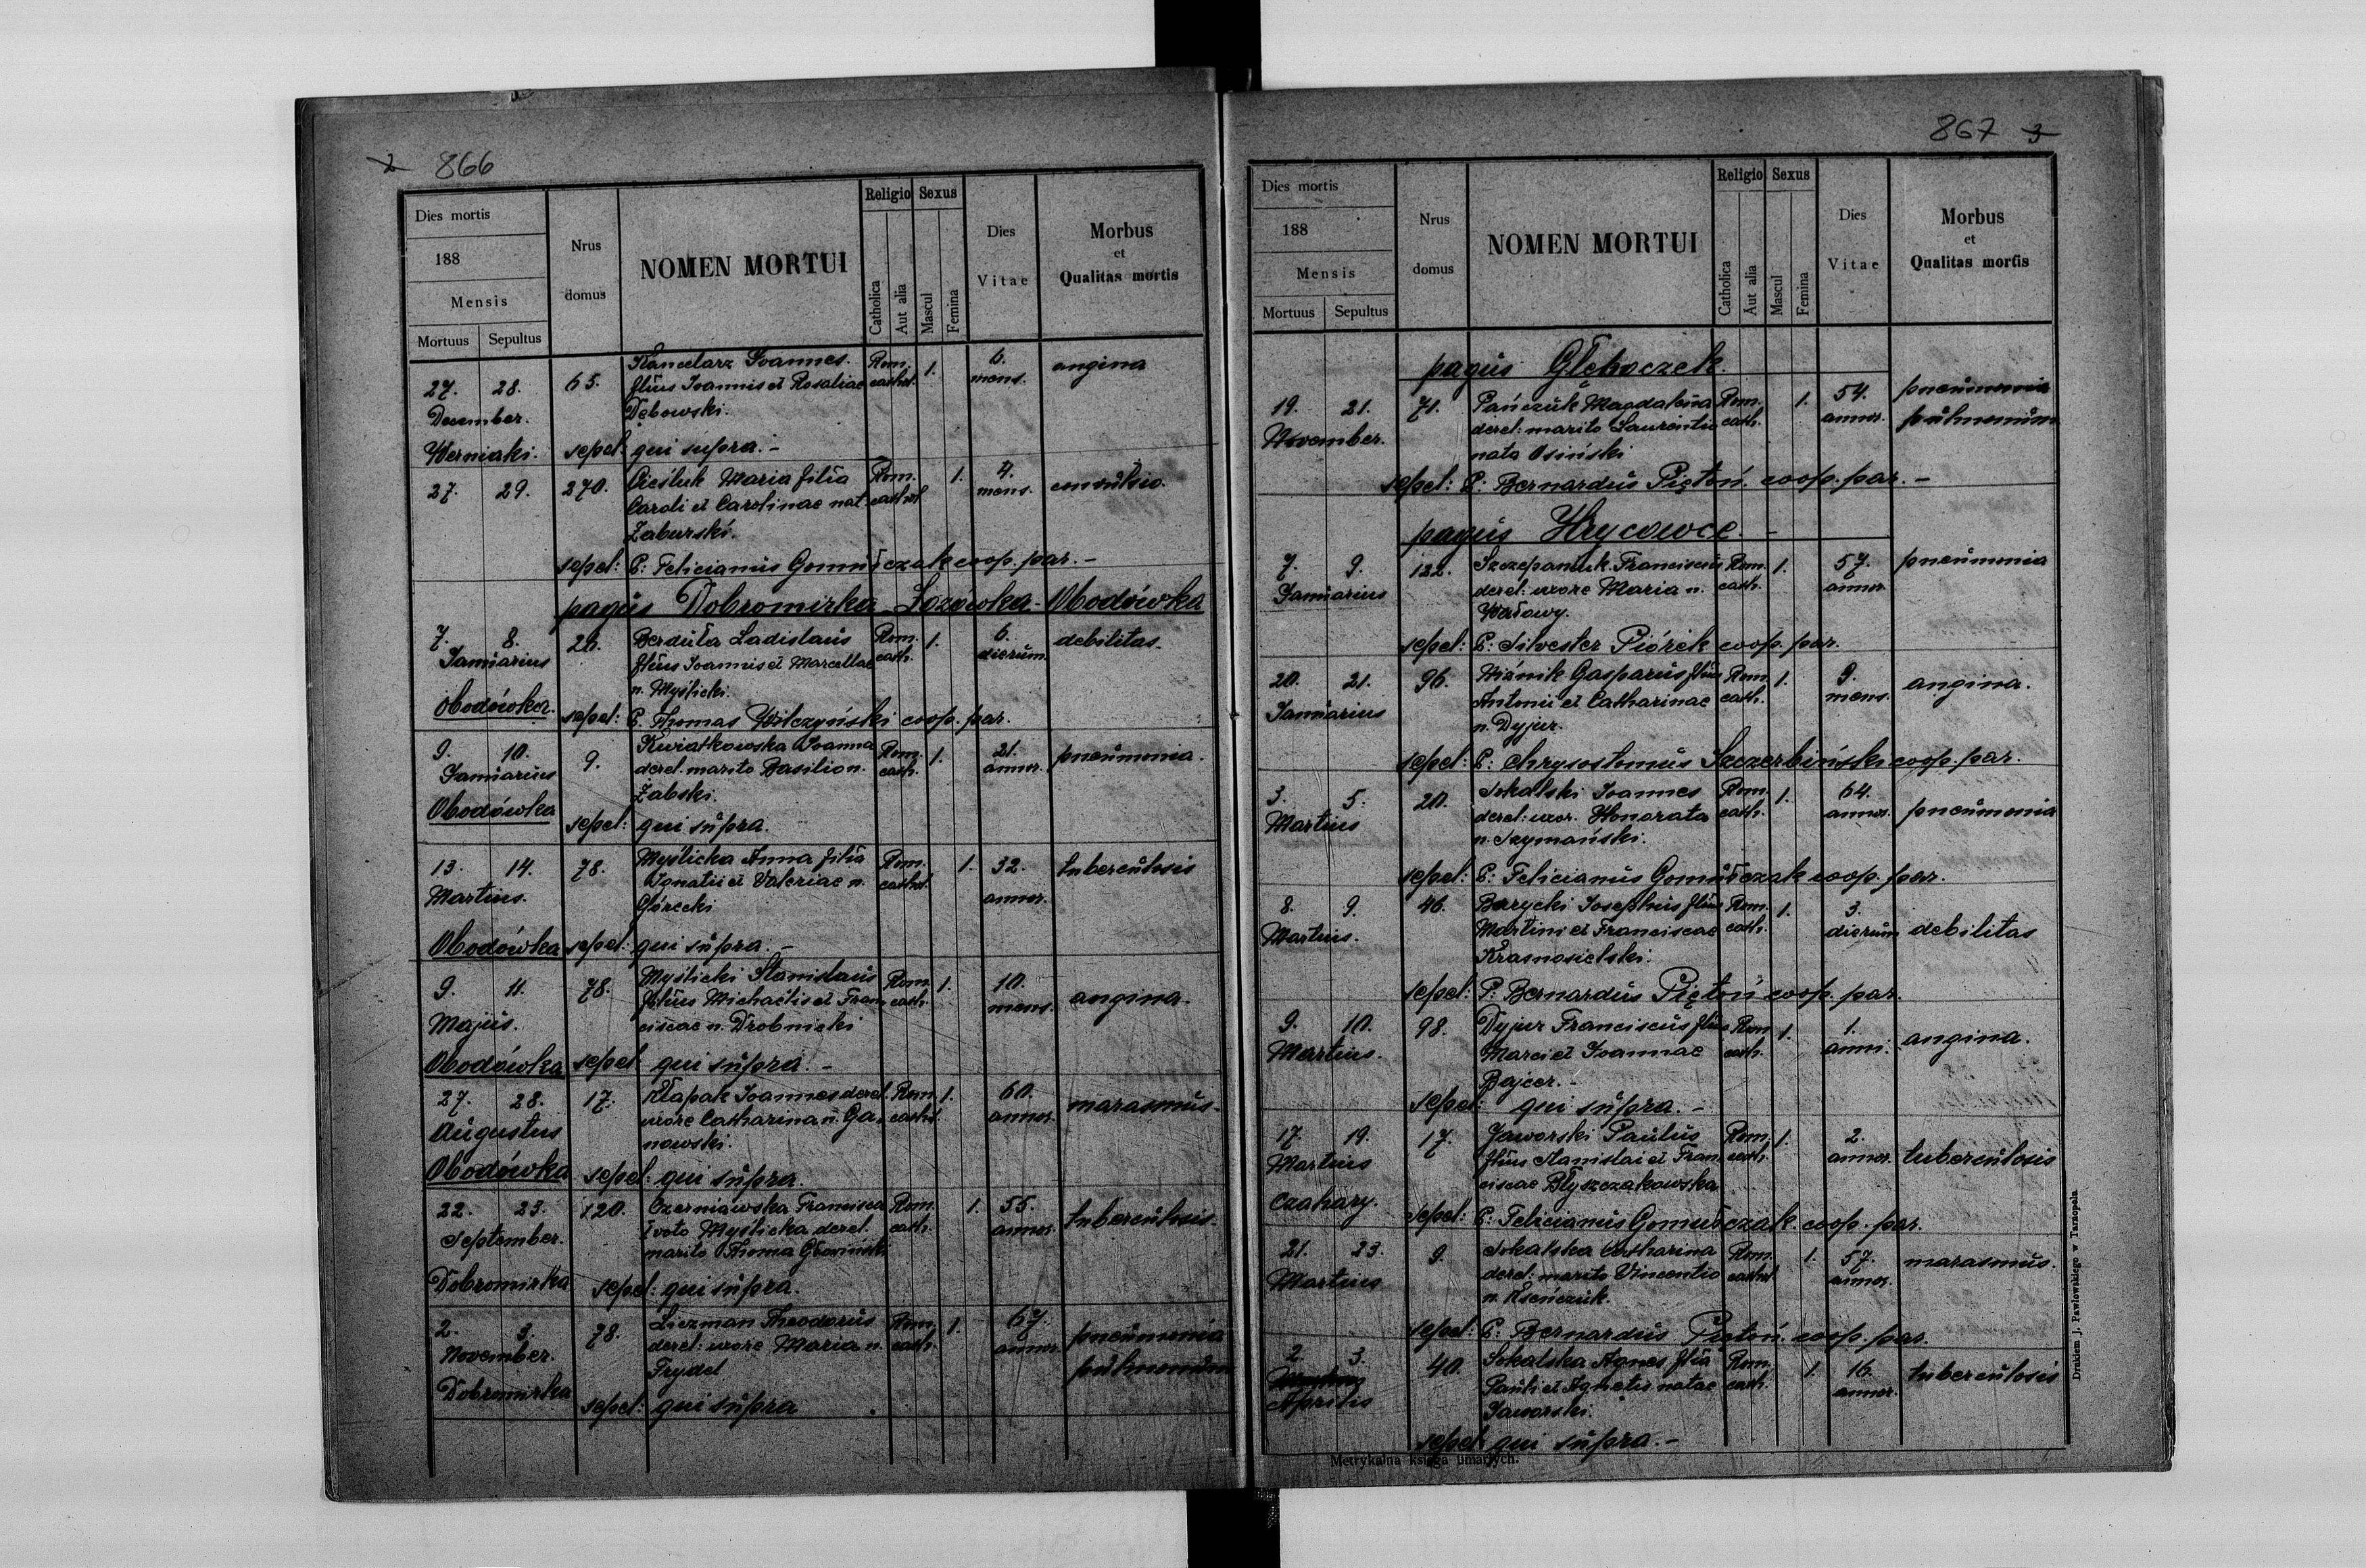 2 866
Dies mortis
188
Mensis
Mortuus Sepultus
Nrus domus
NOMEN MORTUI
Religio Sexus
Catholica Aut alia Mascul Femina
Dies Vitae
Morbus et Qualitas mortis
Kancelarz Joannes. Rom. 6.
27. 28. 65. filius Joannis et Rosaliae cathol. 1. mens. angina
December. Dębowski.
Werniaki. sepel: qui supra. -
27. 29. 270. Cieśluk Maria filia Rom. 1. 4. convulsio.
Caroli et Carolinae nat. cathol. mens.
Zaburski.
sepel: P: Felicianus Gomułczak coop. par. -
pagus Dobromirka - Łozówka - Obodówka
7. 8. 26. Berduła Ladislaus Rom. 1. 6. debilitas.
Januarius filius Joannis et Marcellae cath. dierum
n. Myślicki.
Obodówka. sepel: P. Thomas Wilczyński coop. par.
9. 10. 9. Kwiatkowska Joanna Rom. 1. 21. pneumonia.
Januarius derel. marito Basilio n. cath. annor.
Żabski.
Obodówka sepel: qui supra.
13. 14. 78. Myślicka Anna filia Rom. 1. 32. tuberculosis
Martius. Ignatii et Valeriae n. cathol. annor.
Górecki
Obodówka sepel: qui supra. -
9. 11. 78. Myślicki Stanislaus Rom. 1. 10. angina.
Majus. filius Michaëlis et Fran- cath. mens.
ciscae n. Drobnicki
Obodówka sepel. qui supra. -
27. 28. 17. Kłapak Joannes derel. Rom. 1. 60. marasmus.
Augustus uxore Catharina n. Ga- cathol. annor.
nowski.
Obodówka sepel: qui supra.
22. 23. 120. Czerniawska Francisca Rom. 1. 55. tuberculosis.
September. I voto Myślicka derel. cath. annor.
marito Thoma Głowiński
Dobromirka sepel: qui supra.
2. 3. 78. Liczman Theodorus Rom. 1. 67. pneumonia
November. derel: uxore Maria n. cath. annor. pulmonum
Frydel
Dobromirka sepel: qui supra
867 3
Dies mortis
188
Mensis
Mortuus Sepultus
Nrus domus
NOMEN MORTUI
Religio Sexus
Catholica Aut alia Mascul Femina
Dies Vitae
Morbus et Qualitas mortis
pagus Głęboczek.
19. 21. 71. Pańczuk Magdalena Rom. 1. 54. pneumonia
November. derel: marito Laurentio cath. annor. pulmonum
nata Osiński
sepel: P: Bernardus Piętoń. coop. par. -
pagus Hrycowce. -
7. 9. 122. Szczepaniuk Franciscus Rom. 1. 57. pneumonia
Januarius derel: uxore Maria n. cath. annor.
Wałowy.
sepel: P: Silvester Piórek coop. par.
20. 21. 96. Wiśnik Gasparus filius Rom. 1. 9. angina.
Januarius Antonii et Catharinae cath. mens.
n. Dyjur.
sepel: P: Chrysostomus Szczerbiński coop. par.
3. 5. 20. Sokalski Joannes Rom. 1. 64. pneumonia
Martius derel: uxor. Honorata cath. annor.
n. Szymański.
sepel: P: Felicianus Gomułczak coop. par.
8. 9. 46. Barycki Josephus filius Rom. 1. 3. debilitas
Martius. Martini et Franciscae cath. dierum
Krasnosielski.
sepel: P: Bernardus Piętoń coop. par.
9. 10. 98. Dyjur Franciscus filius Rom. 1. 1. angina.
Martius. Marci et Joannae cath. anni.
Bajcer. -
sepel: qui supra. -
17. 19. 17. Jaworski Paulus Rom. 1. 2. tuberculosis
Martius filius Stanislai et Fran- cath. annor.
ciscae Błyszczakowska
Czahary. sepel: P: Felicianus Gomułczak coop. par.
21. 23. 9. Sokalska Catharina Rom. 1. 57. marasmus.
Martius derel: marito Vincentio cathol. annor.
n. Kseńczuk.
sepel: P: Bernardus Piętoń. coop. par.
2. 3. 40. Sokalska Agnes filia Rom. 1. 16. tuberculosis
Aprilis Pauli et Agnetis natae cath. annor.
Jaworski.
sepel: qui supra. -
Metrykalna księga umarłych.
Drukiem J. Pawlowskiego w Tarnopolu